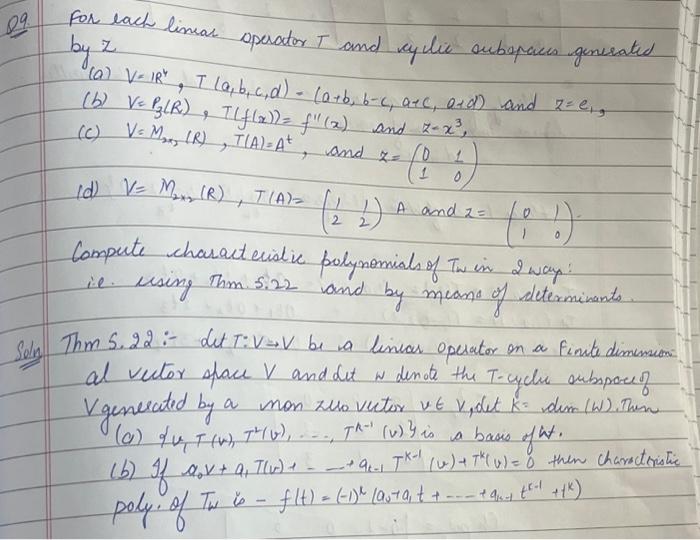 Q9. For each linear operator T and cyclic subspaces generated
by z
(a) V = R⁴, T(a,b,c,d) = (a+b, b-c, a+c, a+d) and z = e₁,
(b) V = P₃(R), T(f(x)) = f''(x) and z = x³,
(c) V = M₂ₓ₂(R), T(A) = Aᵗ, and z = (0 1
1 0)
(d) V = M₂ₓ₂(R), T(A) = (1 1 A and z = (0 1
2 2) 1 0).
Compute characteristic polynomials of Tw in 2 way:
i.e. using Thm 5.22 and by means of determinants.
Soln Thm 5.22 :- let T: V→V be a linear operator on a finite dimension
al vector space V and let W denote the T-cyclic subspace of
V generated by a non zero vector v ∈ V, let k = dim (W). Then
(a) {v, T(v), T²(v), ..., Tᵏ⁻¹(v)} is a basis of W.
(b) If a₀v + a₁T(v) + --- + aₖ₋₁ Tᵏ⁻¹(v) + Tᵏ(v) = 0 then characteristic
poly. of Tw is - f(t) = (-1)ᵏ (a₀ + a₁t + ---- + aₖ₋₁ tᵏ⁻¹ + tᵏ)